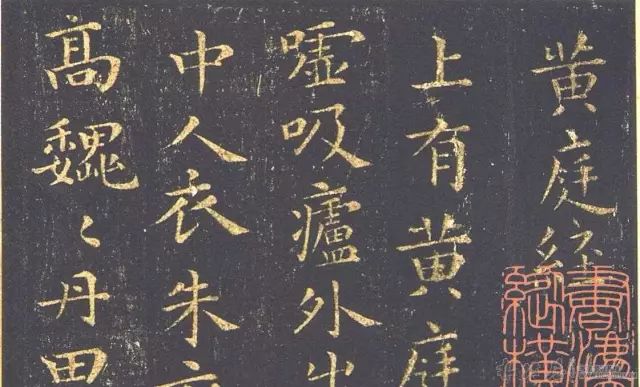 黄庭経
上有黄庭
嘘吸廬外出
中人衣朱衣
高巍〻丹田